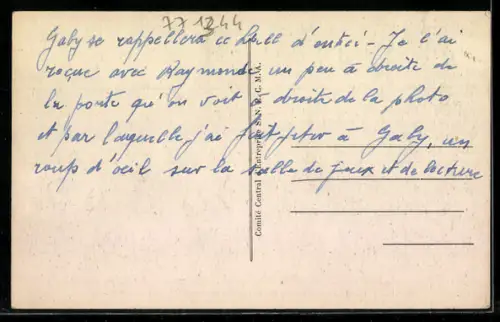 771244
Gaby se rappellera ce hall d'entéi - Je l'ai
reçue avec Raymonde un peu à droite de
la porte qu'on voit à droite de la photo
et par laquelle j'ai fait jeter à Gaby, un
coup d'oeil sur la salle de jeux et de lecture
Comité Central d'Entreprise S. N. E. C. M. A.